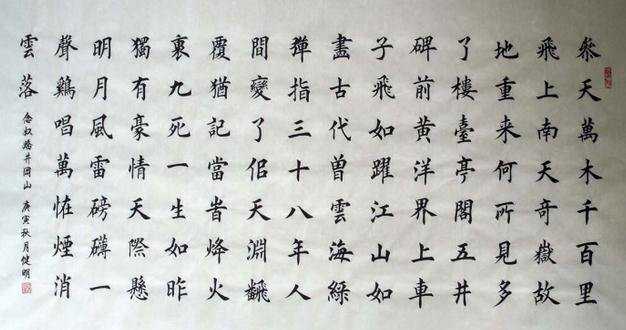 叅天萬木千百里
飛上南天奇嶽故
地重来何所見多
了樓臺亭閣五井
碑前黄洋界上車
子飛如躍江山如
畫古代曾雲海綠
彈指三十八年人
間變了佀天淵飜
覆猶記當旹烽火
裏九死一生如昨
獨有豪情天際懸
明月風雷磅礴一
聲鷄唱萬恠煙消
雲落 念奴嬌井岡山 庚寅秋月健明